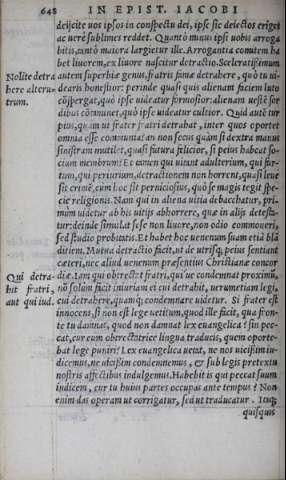 648 IN EPIST. IACOBI
deijcite uos ipsos in conspectu dei, ipse sic deiectos eriget
ac uere sublimes reddet. Quantò minus ipsi uobis arroga
bitis, tantò maiora largietur ille. Arrogantia comitem ha
bet liuorem, ex liuore nascitur detractio. Sceleratissimum
Nolite detra
here alteru=
trum.
autem superbiæ genus, fratris famæ detrahere, quò tu ui=
dearis honestior: perinde quasi quis alienam faciem luto
cōspergat, quò ipse uideatur formosior: alienam uestē sor
dibus cōmunet, quò ipse uideatur cultior. Quid autē tur
pius, quàm ut frater fratri detrahat, inter quos oportet
omnia esse communia? an non secus quàm si dextra manus
sinistram mutilet, quasi futura felicior, si peius habeat so=
cium membrum? Et tamen qui uitant adulterium, qui fur=
tum, qui periurium, detractionem non horrent, quasi leue
sit crimē, cum hoc sit perniciosius, quò se magis tegit spe=
cie religionis. Nam qui in aliena uitia debacchatur, pri=
mùm uidetur ab his uitijs abhorrere, quæ in alijs detesta=
tur: deinde simulat sese non liuore, non odio commoueri,
sed studio probitatis. Et habet hoc uenenum suam etiā blā
ditiem. Mutua detractio facit, ut de utrisq; peius sentiant
cæteri, nec aliud uenenum præsentius Christianæ concor
Qui detra=
hit fratri,
aut qui iud.
diæ. Iam qui obtrectat fratri, qui'ue condemnat proximū,
nō solùm facit iniuriam ei cui detrahit, uerumetiam legi,
cui detrahere, quamq; condemnare uidetur. Si frater est
innocens, si non est lege uetitum, quod ille facit, qua fron=
te tu damnas, quod non damnat lex euangelica? sin pec=
cat, cur eum obtrectatrice lingua traducis, quem oporte=
bat lege puniri? Lex euangelica uetat, ne nos uicissim iu=
dicemus, ne uicissim condemnemus, & sub legis prætextu
nostris affectibus indulgemus. Habebit is qui peccat suum
iudicem, cur tu huius partes occupas ante tempus? Non
enim das operam ut corrigatur, sed ut traducatur. Itaq;
quisquis